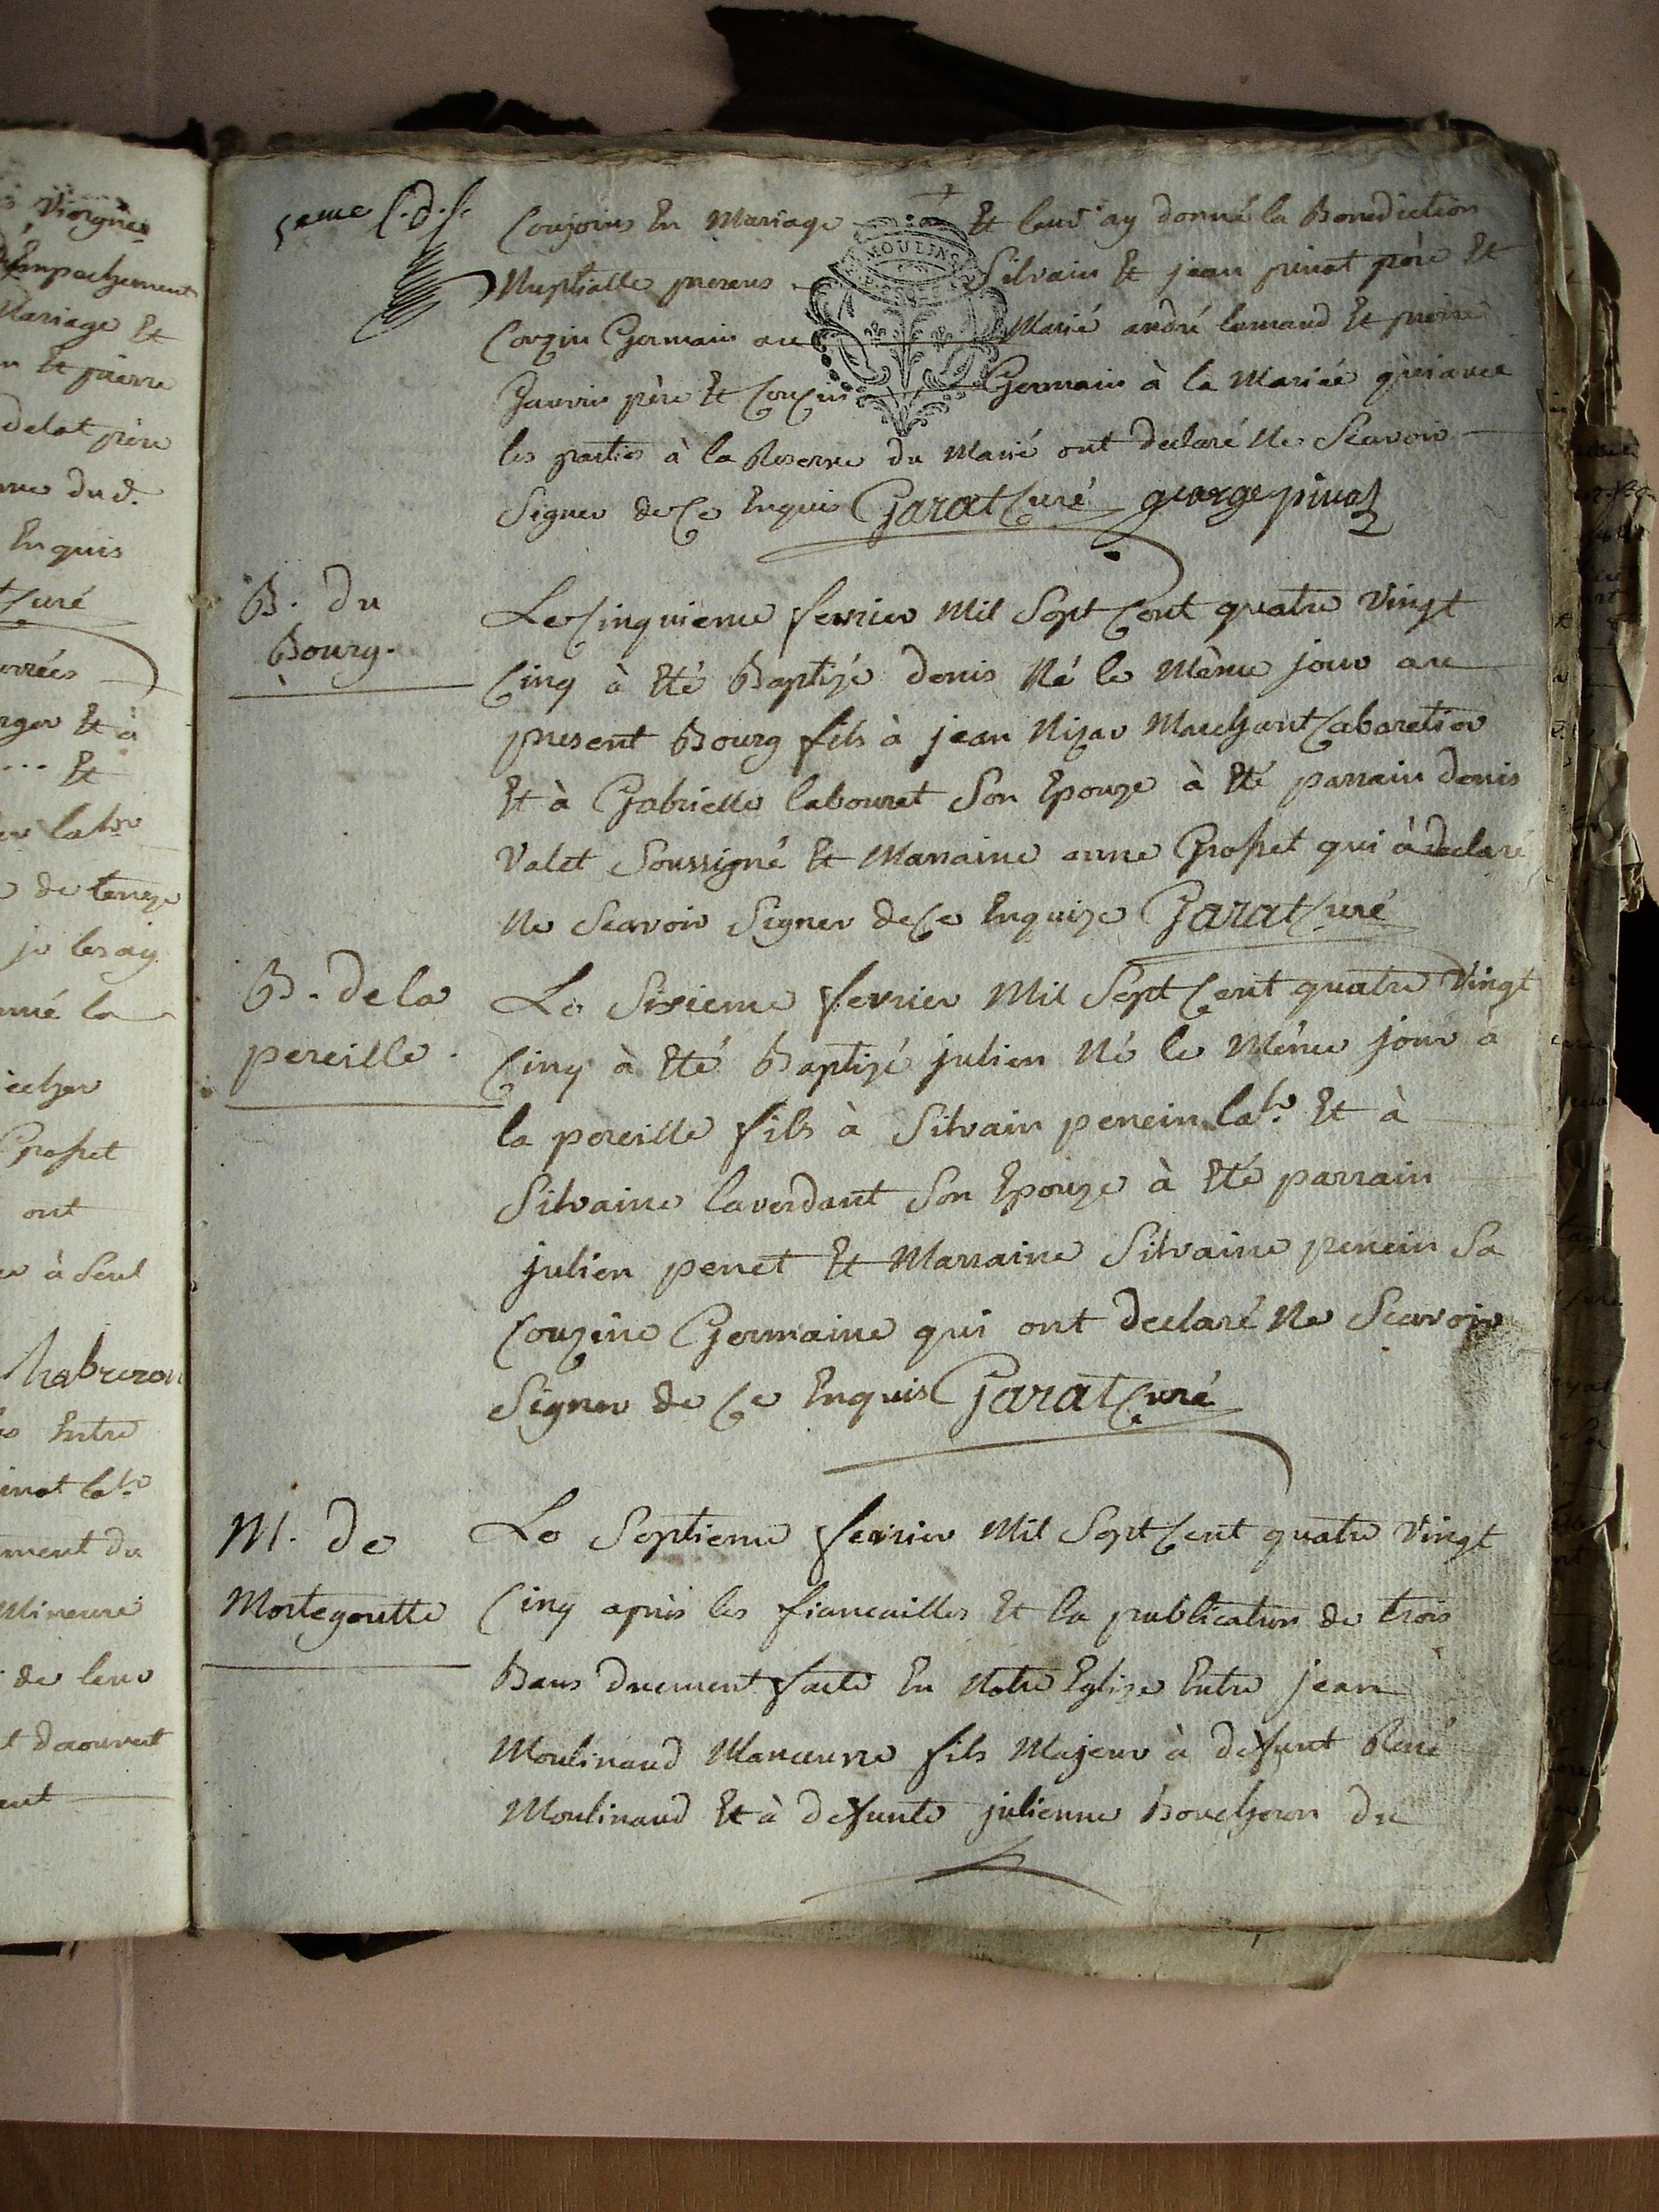 Viorgnes
Empachement
Mariage Et
Et pierre
delat père
Enquis
Curé
Et à
Et
de
je les ay
la
Grofret
ont
à Seul
Chabreron
Entre
ment du
Mineure
de leur
5eme
Conjoins En Mariage Et leur ay donné la Benediction
MOULINS
Nuptialle presens Silvain Et jean pinot père Et
Couzin Germain au Marié andré lamaud Et pierre
Jauvin père Et Couzin Germain à la Mariée qui avec
les parties à la Reserve du Marié ont declaré Ne Scavoir
Signer de Ce Enquis Garat Curé george pinot
B. du
Bourg.
Le Cinquieme fevrier Mil Sept Cent quatre Vingt
Cinq à Eté Baptizé denis Né le Même jour au
present Bourg fils à jean Nizar Marchant Cabaretier
Et à Gabrielle labouret Son Epouze à Eté parrain denis
Valet Soussigné Et Marraine anne Grofret qui à declaré
Ne Scavoir Signer de Ce Enquize Garat Curé
B. de la
pereille.
Le Sixieme fevrier Mil Sept Cent quatre Vingt
Cinq à Eté Baptizé julien Né le Même jour à
la pereille fils à Silvain penein lab.r Et à
Silvaine laverdant Son Epouze à Eté parrain
julien penet Et Marraine Silvaine penein Sa
Couzine Germaine qui ont declaré Ne Scavoir
Signer de Ce Enquis Garat Curé
M. de
Mortegoutte
Le Septieme fevrier Mil Sept Cent quatre Vingt
Cinq après les fiancailles Et la publication de trois
Bans duement faite En Notre Eglize Entre jean
Moulinaud Manœuvre fils Majeur à defunt René
Moulinaud Et à defunte julienne Boucheron du